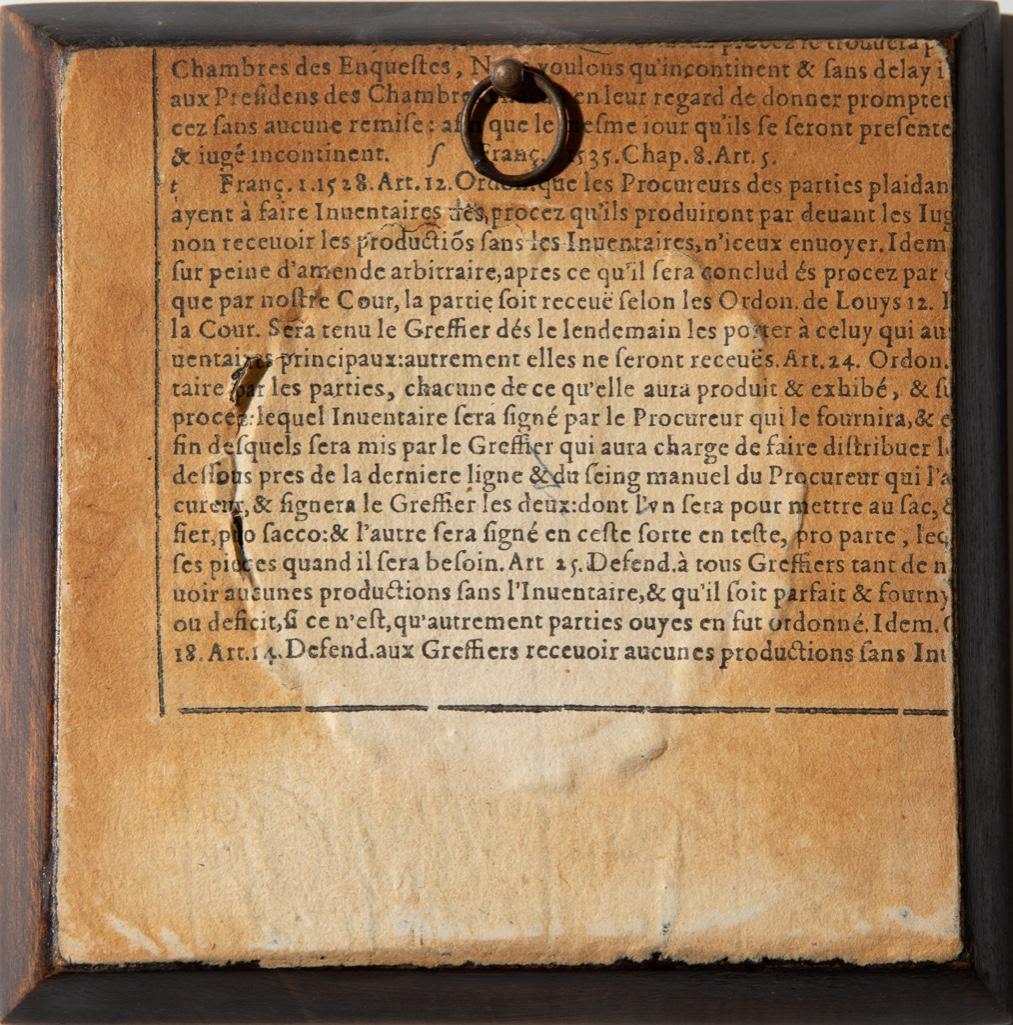 procez se trouuera p
Chambres des Enqueſtes, Nous voulons qu'incontinent & ſans delay i
aux Preſidens des Chambres en leur regard de donner prompte
cez ſans aucune remiſe: afin que le meſme iour qu'ils ſe ſeront preſente
& iugé incontinent. ſ Franç. 1535. Chap. 8. Art. 5.
t Franç. 1. 1528. Art. 12. Ordon. que les Procureurs des parties plaidan
ayent à faire Inuentaires des procez qu'ils produiront par deuant les Iug
non receuoir les productiõs ſans les Inuentaires, n'iceux enuoyer. Idem
ſur peine d'amende arbitraire, apres ce qu'il ſera conclud és procez par
que par noſtre Cour, la partie ſoit receuë ſelon les Ordon. de Louys 12.
la Cour. Sera tenu le Greffier dés le lendemain les porter à celuy qui au
uentaires principaux: autrement elles ne ſeront receuës. Art. 24. Ordon.
taire par les parties, chacune de ce qu'elle aura produit & exhibé, & ſu
procez: lequel Inuentaire ſera ſigné par le Procureur qui le fournira, & e
fin deſquels ſera mis par le Greffier qui aura charge de faire diſtribuer l
deſſous pres de la derniere ligne & du ſeing manuel du Procureur qui l'a
cureur, & ſignera le Greffier les deux: dont l'vn ſera pour mettre au ſac, &
fier, pro ſacco: & l'autre ſera ſigné en ceſte ſorte en teſte, pro parte, leq
ſes pieces quand il ſera beſoin. Art 25. Defend. à tous Greffiers tant de n
uoir aucunes productions ſans l'Inuentaire, & qu'il ſoit parfait & fourny
ou deficit, ſi ce n'eſt, qu'autrement parties ouyes en fut ordonné. Idem.
18. Art. 14. Defend. aux Greffiers receuoir aucunes productions ſans Inu